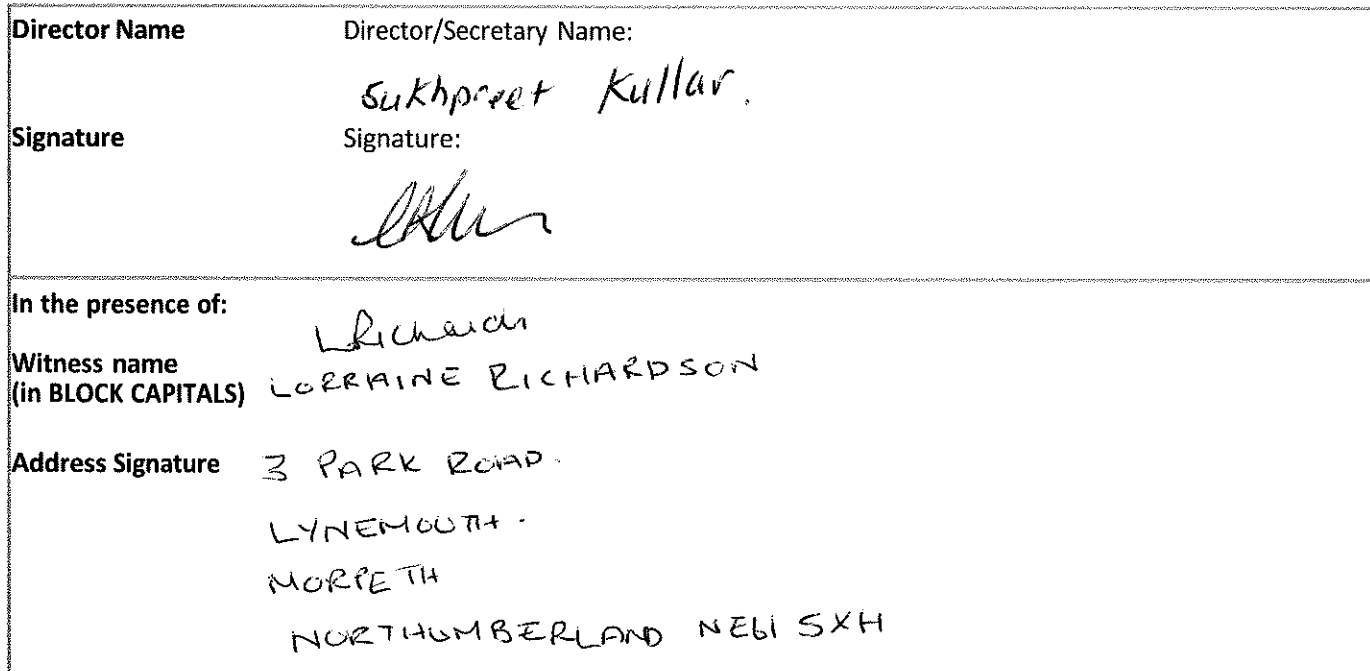 Director Name Director/Secretary Name:
Sukhpreet Kullar.
Signature Signature:
In the presence of:
LRichards
Witness name
(in BLOCK CAPITALS) LORRAINE RICHARDSON
Address Signature 3 PARK ROAD.
LYNEMOUTH.
MORPETH
NORTHUMBERLAND NE61 5XH